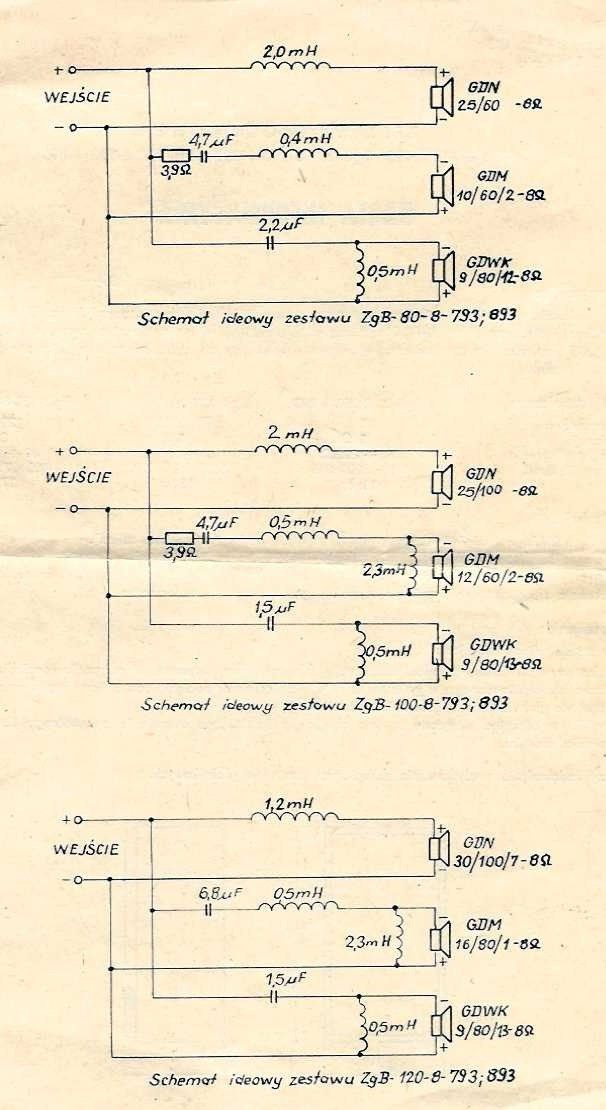 2,0mH
+
WEJŚCIE
-
+
-
GDN
25/60 -8Ω
4,7µF
0,4mH
3,9Ω
-
+
GDM
10/60/2-8Ω
2,2µF
0,5mH
-
+
GDWK
9/80/12-8Ω
Schemat ideowy zestawu ZgB-80-8-793; 893
2 mH
+
WEJŚCIE
-
+
-
GDN
25/100 -8Ω
4,7µF
0,5mH
3,9Ω
2,3mH
-
+
GDM
12/60/2-8Ω
1,5µF
0,5mH
-
+
GDWK
9/80/13-8Ω
Schemat ideowy zestawu ZgB-100-8-793; 893
1,2mH
+
WEJŚCIE
-
+
-
GDN
30/100/7-8Ω
6,8µF
0,5mH
2,3mH
-
+
GDM
16/80/1-8Ω
1,5µF
0,5mH
-
+
GDWK
9/80/13-8Ω
Schemat ideowy zestawu ZgB-120-8-793; 893